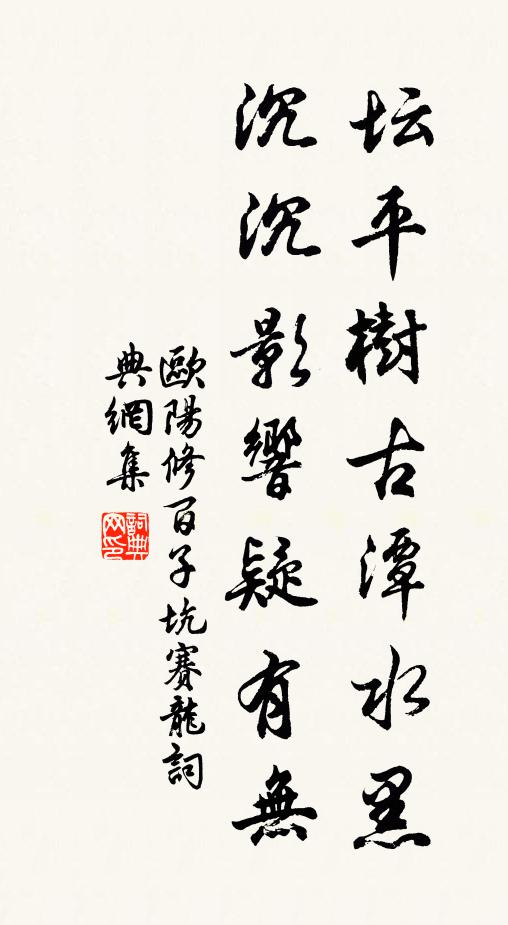 坛平樹古潭水黑
沉沉影響疑有無
歐陽修百子坑賽龍詞
典網集
詞典网印